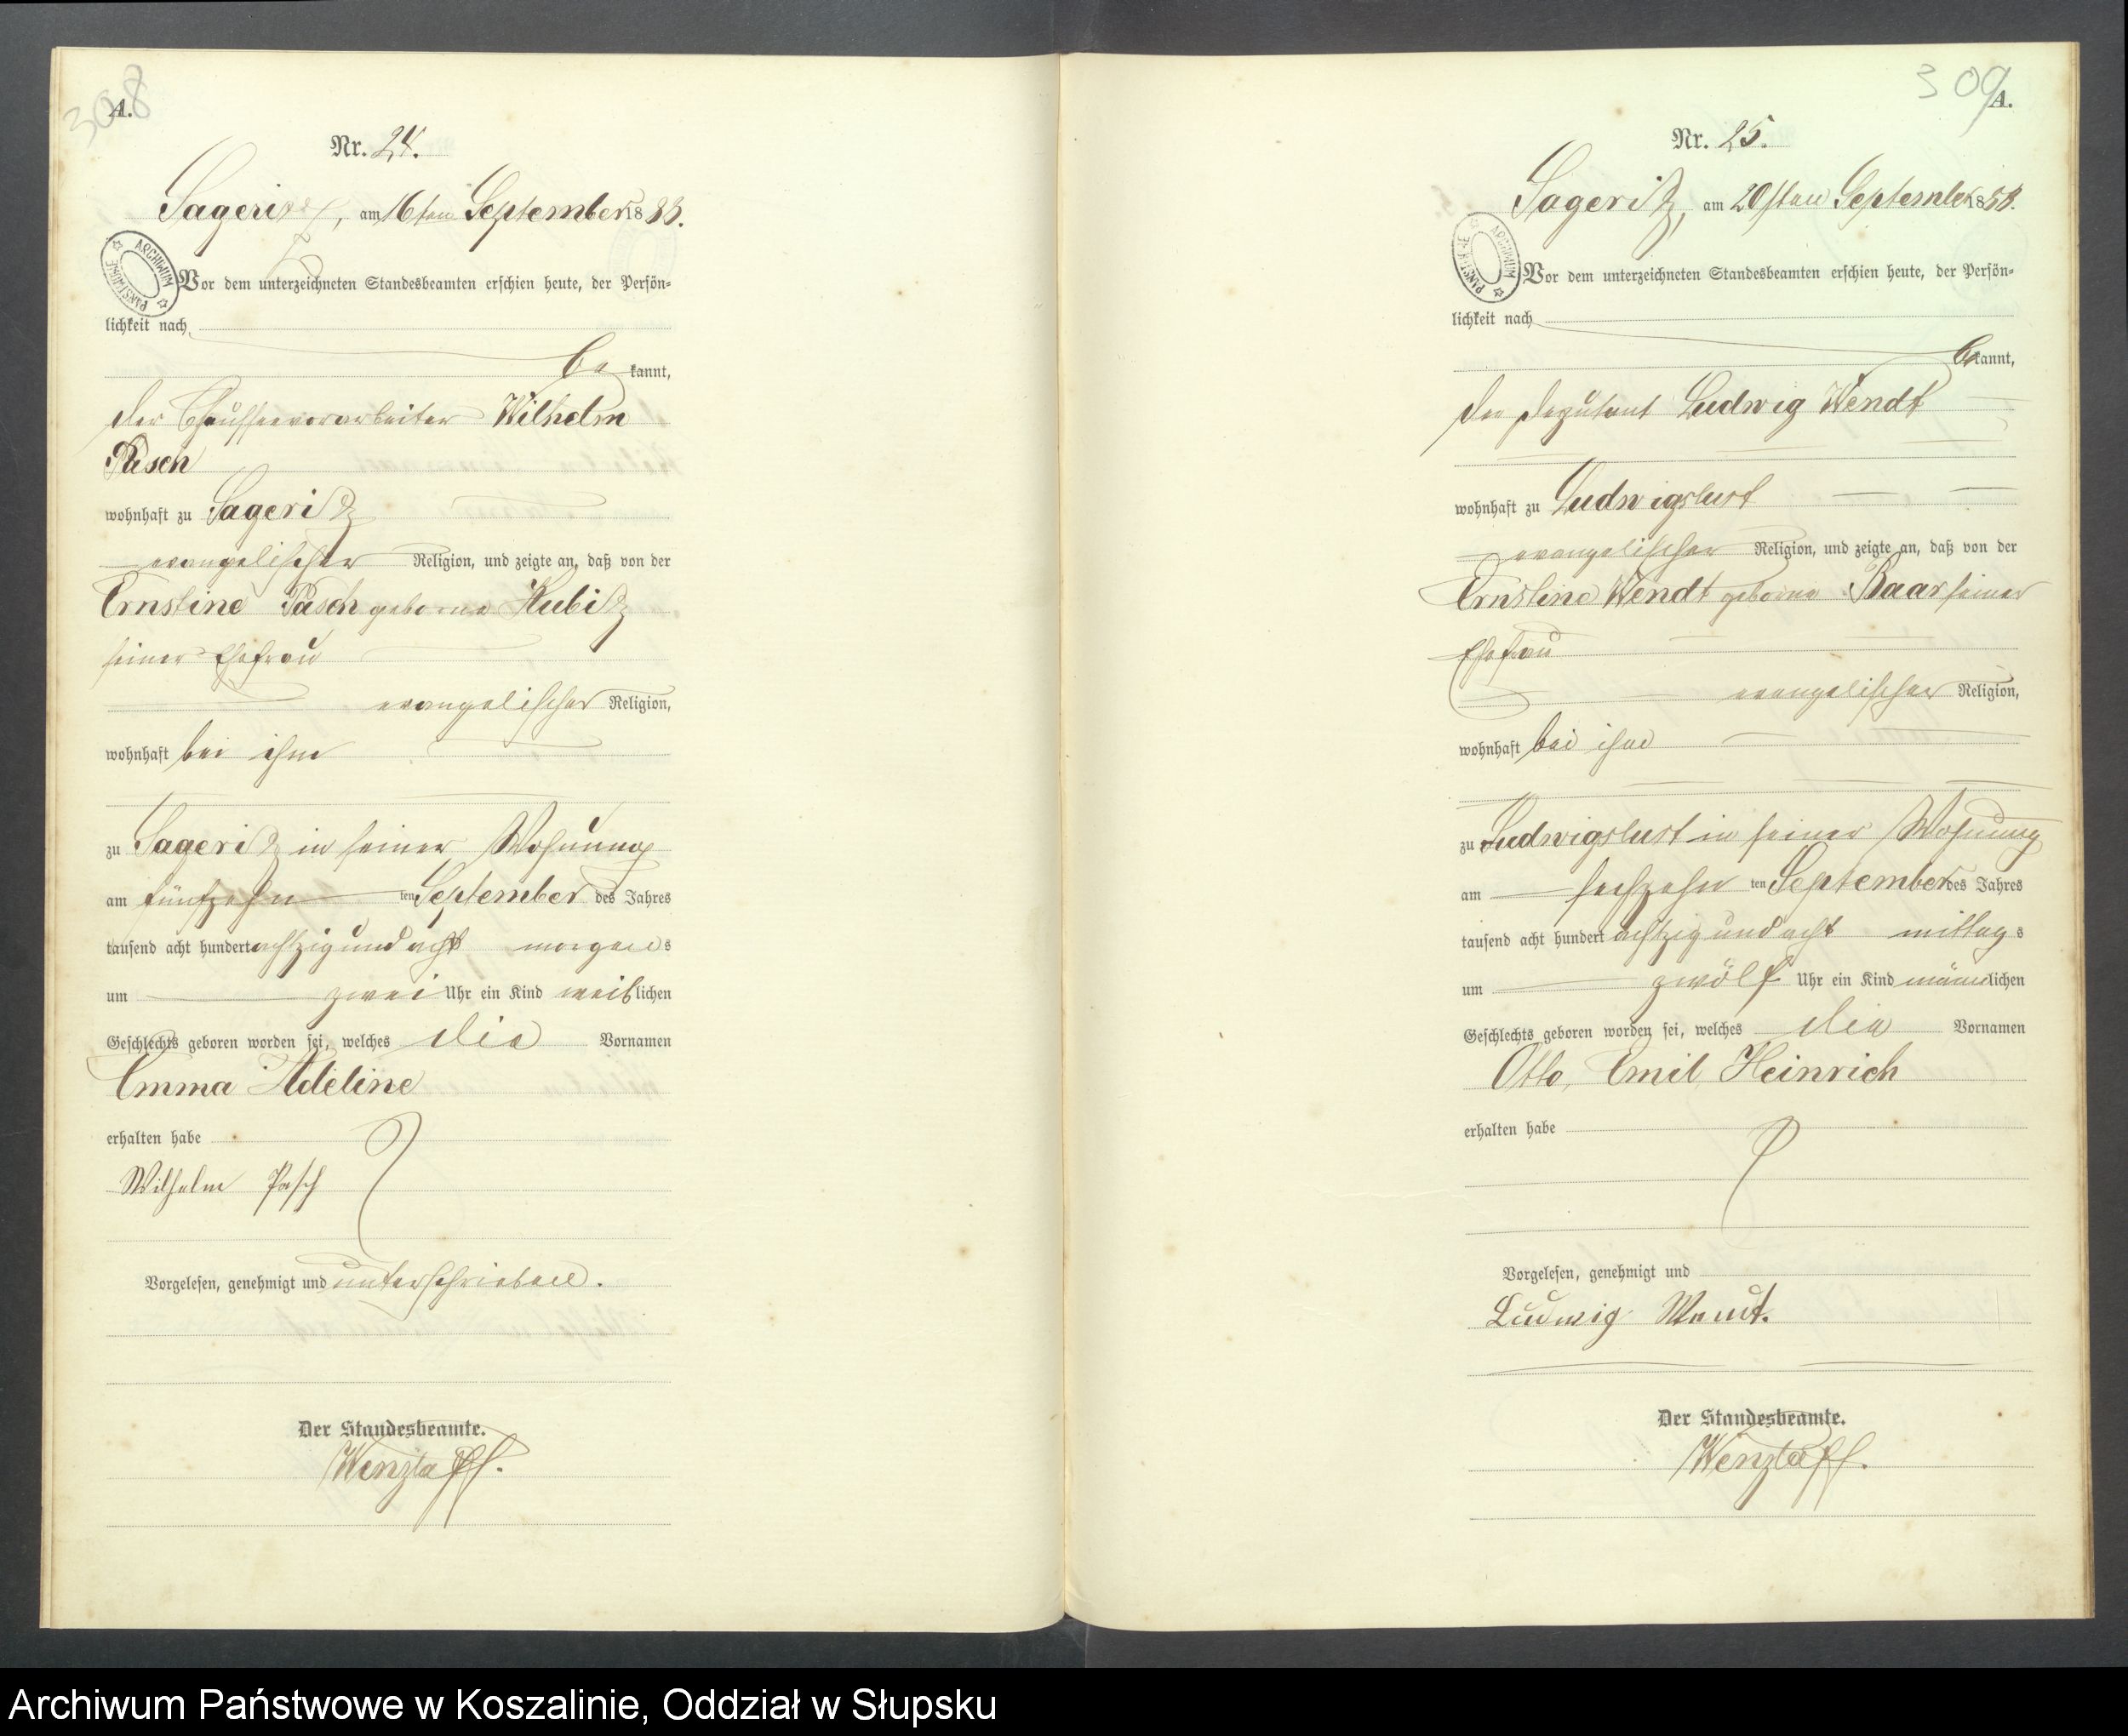 308
A.
Nr. 24.
Sageritz, am 16ten September 1888.
ARCHIWUM PAŃSTWOWE
Vor dem unterzeichneten Standesbeamten erschien heute, der Persön-
lichkeit nach
be kannt,
der Chausseevorarbeiter Wilhelm
Pasch
wohnhaft zu Sageritz
evangelischer Religion, und zeigte an, daß von der
Ernstine Pasch geborne Kubitz
seiner Ehefrau
evangelischer Religion,
wohnhaft bei ihm
zu Sageritz in seiner Wohnung
am fünfzehn ten September des Jahres
tausend acht hundert achtzig und acht morgens
um zwei Uhr ein Kind weiblichen
Geschlechts geboren worden sei, welches die Vornamen
Emma Adeline
erhalten habe
Wilhelm Pasch
Vorgelesen, genehmigt und unterschrieben.
Der Standesbeamte.
Wenzlaff.
309
A.
Nr. 25.
Sageritz, am 20sten September 1888.
ARCHIWUM PAŃSTWOWE
Vor dem unterzeichneten Standesbeamten erschien heute, der Persön-
lichkeit nach
bekannt,
der Deputant Ludwig Wendt
wohnhaft zu Ludwigslust
evangelischer Religion, und zeigte an, daß von der
Ernstine Wendt geborne Baar seiner
Ehefrau
evangelischer Religion,
wohnhaft bei ihm
zu Ludwigslust in seiner Wohnung
am sechzehn ten September des Jahres
tausend acht hundert achtzig und acht mittags
um zwölf Uhr ein Kind männlichen
Geschlechts geboren worden sei, welches die Vornamen
Otto, Emil, Heinrich
erhalten habe
Vorgelesen, genehmigt und
Ludwig Wendt.
Der Standesbeamte.
Wenzlaff.
Archiwum Państwowe w Koszalinie, Oddział w Słupsku